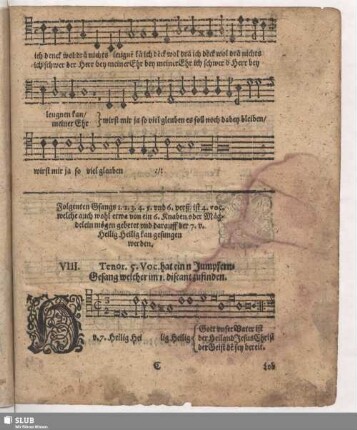 ich denck wol drā nichts leugnē kā ich dēck wol drā ich dēck wol drā nichts
ich schwer der Herr bey meiner Ehr bey meiner Ehr ich schwer d Herr bey
leugnen kan/
meiner Ehr } wirst mir ja so viel glauben es soll noch dabey bleiben/
wirst mir ja so viel glauben :/:
Folgenten Gsangs 1. 2. 3. 4. 5. vnd 6. verß/ ist 4. voc.
welche auch wohl etwa von ein 6. Knaben oder Mäg-
delein mögen gebetet vnd darauff der 7. v.
Heilig Heilig kan gesungen
werden.
VIII. Tenor. 5. Voc. hat ein n Jumpfern-
Gesang welcher im 1. discant zufinden.
v. 7. Heilig Hei lig Heilig
Gott vnser Vater ist
der Heiland Jesus Christ
der Geist
C
Lob
SLUB